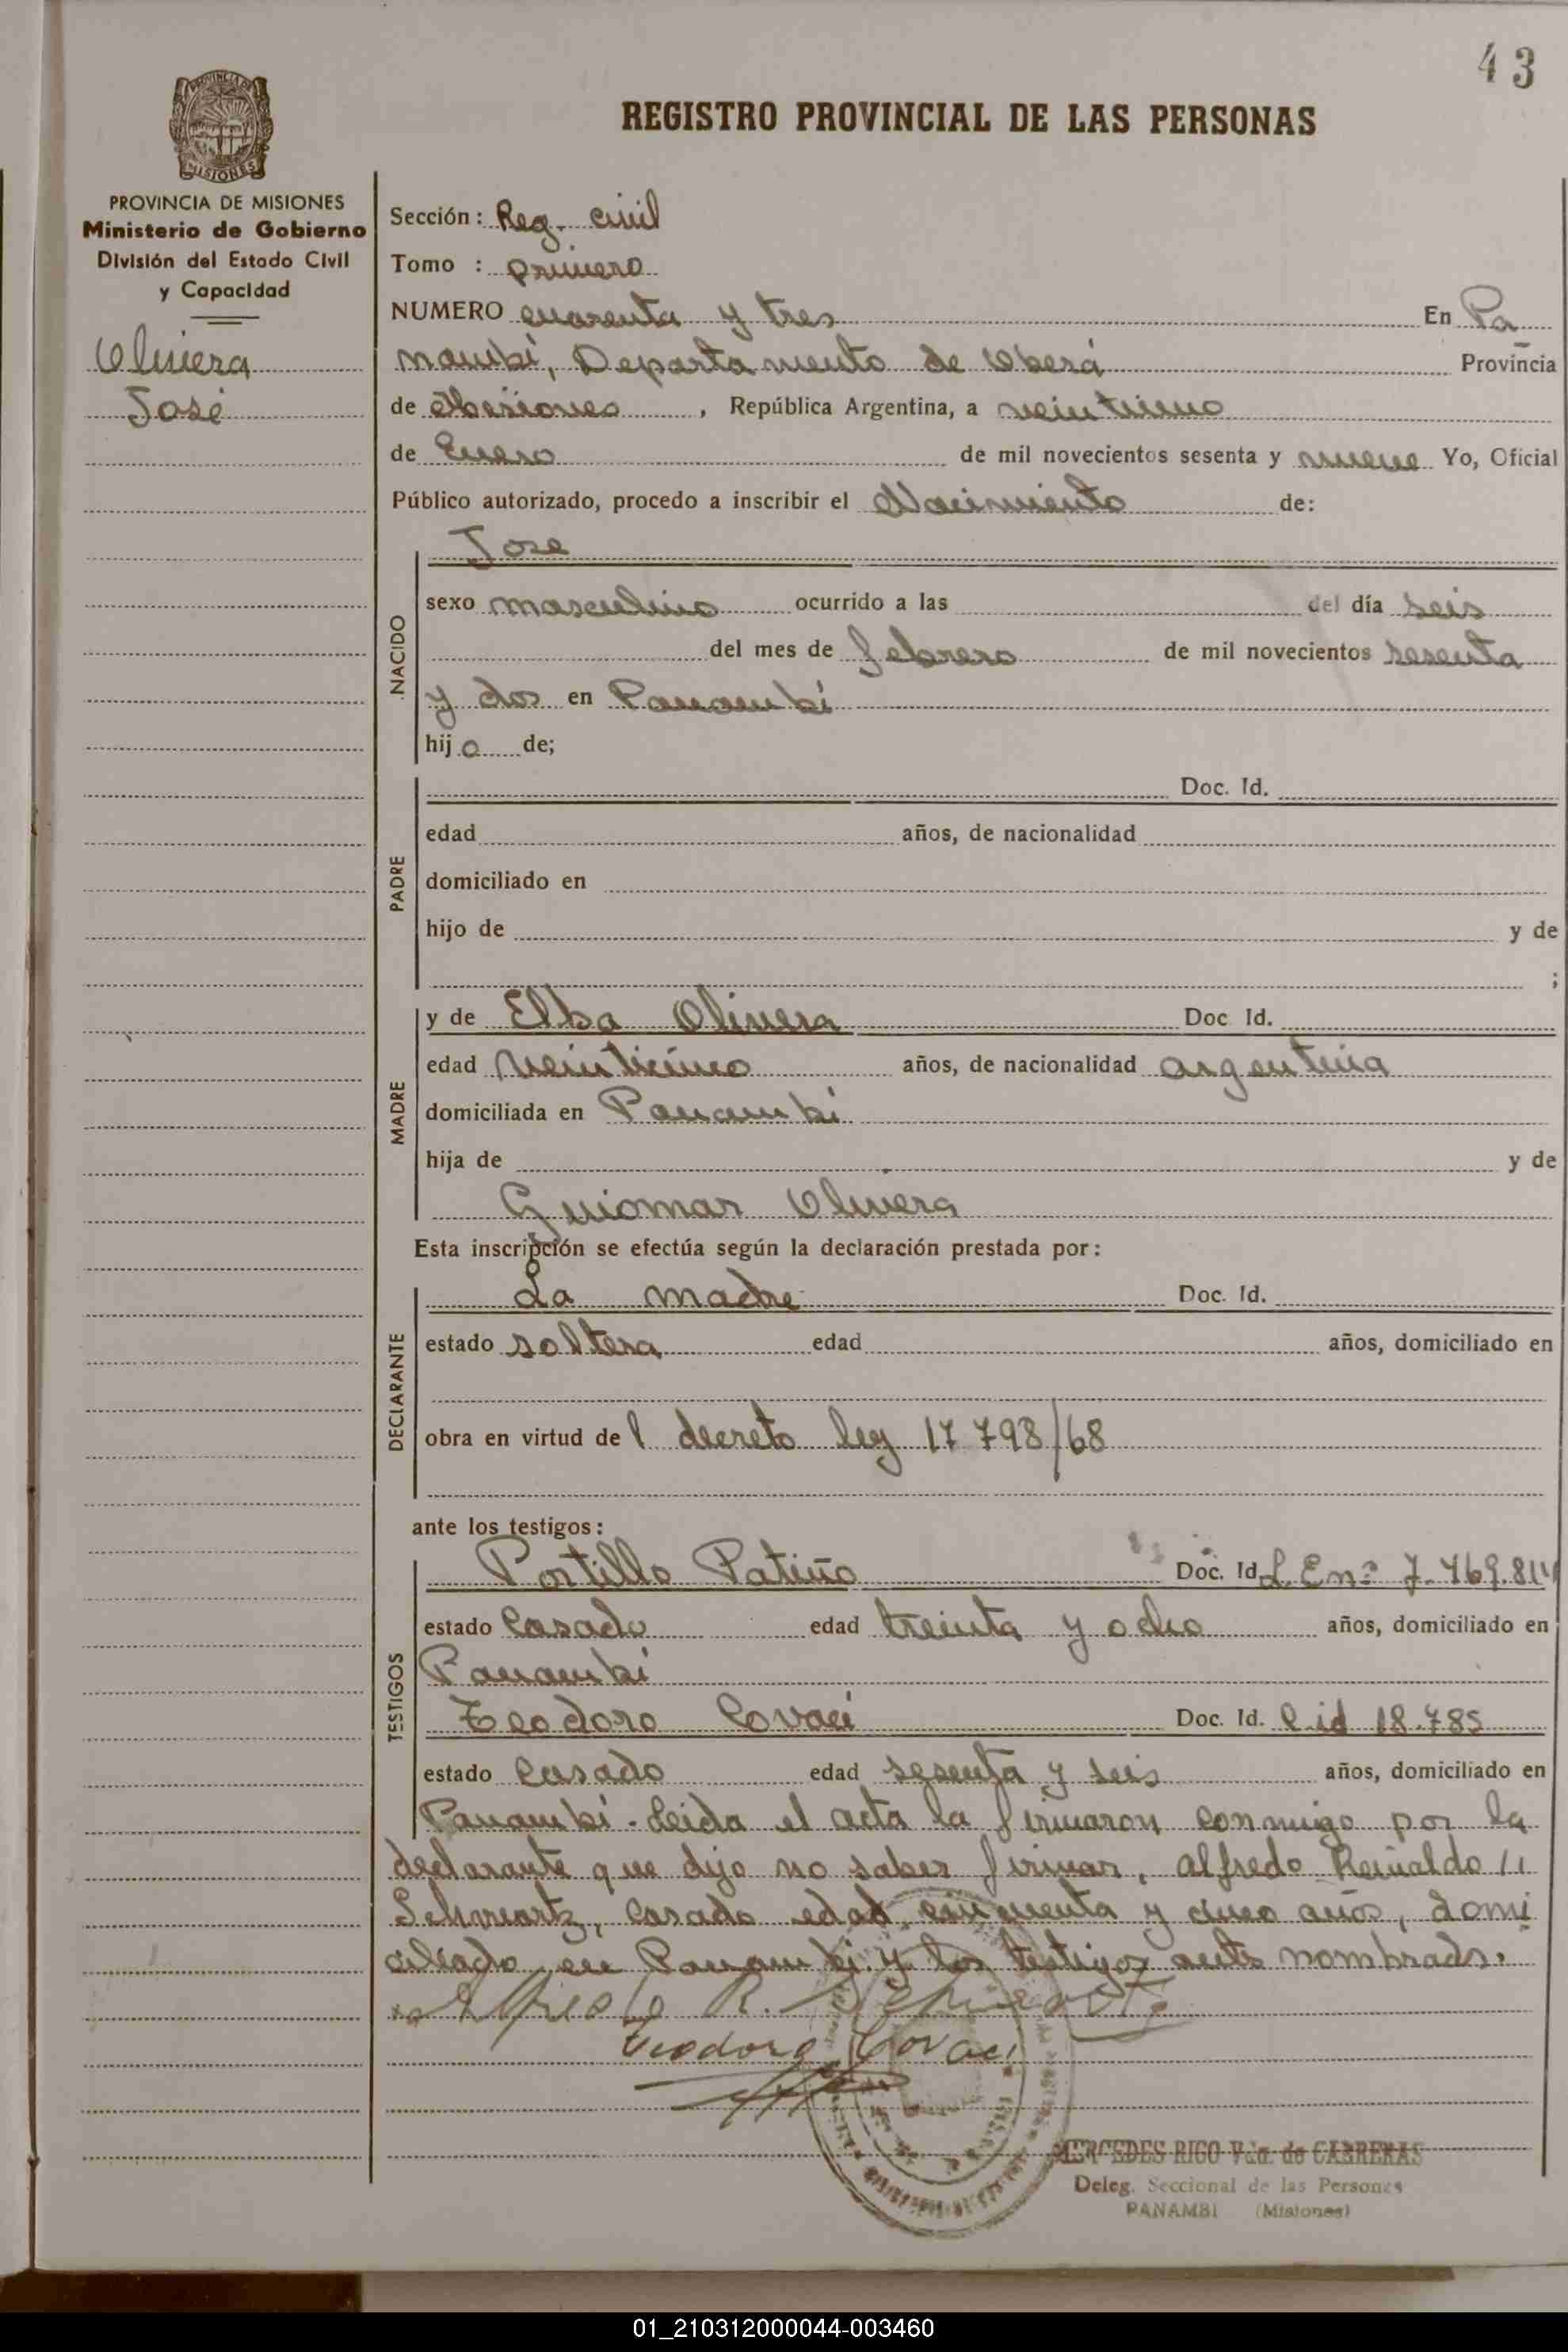 43
REGISTRO PROVINCIAL DE LAS PERSONAS
PROVINCIA DE
MISIONES
PROVINCIA DE MISIONES
Ministerio de Gobierno
División del Estado Civil
y Capacidad
Olivera
José
Sección: Reg. civil
Tomo : primero
NUMERO cuarenta y tres En Pa
nambí, Departamento de Oberá Provincia
de Misiones, República Argentina, a veintiuno
de Enero de mil novecientos sesenta y nueve Yo, Oficial
Público autorizado, procedo a inscribir el Nacimiento de:
NACIDO
Jose
sexo masculino ocurrido a las del día seis
del mes de febrero de mil novecientos sesenta
y dos en Panambí
hijo de;
PADRE
Doc. Id.
edad años, de nacionalidad
domiciliado en
hijo de y de
;
MADRE
y de Elba Olivera Doc Id.
edad veinticinco años, de nacionalidad argentina
domiciliada en Panambí
hija de y de
Guiomar Olivera
Esta inscripción se efectúa según la declaración prestada por:
DECLARANTE
La madre Doc. Id.
estado soltera edad años, domiciliado en
obra en virtud del decreto ley 17 798/68
ante los testigos:
TESTIGOS
Portillo Patiño Doc. Id. L. E nº
estado casado edad treinta y ocho años, domiciliado en
Panambí
Teodoro Covaci Doc. Id. C. id 18.785
estado casado edad sesenta y seis años, domiciliado en
Panambí. Leida el acta la firmaron conmigo por la
declarante que dijo no saber firmar, Alfredo Reinaldo //
Schwartz, casado edad cincuenta y cinco años, domi
ciliado en Panambí y los testigos ante nombrads.
Alfredo R. Schwartz
Teodoro Covaci
MERCEDES RIGO Vda. de CABRERAS
Deleg. Seccional de las Personas
PANAMBI (Misiones)
01_210312000044-003460